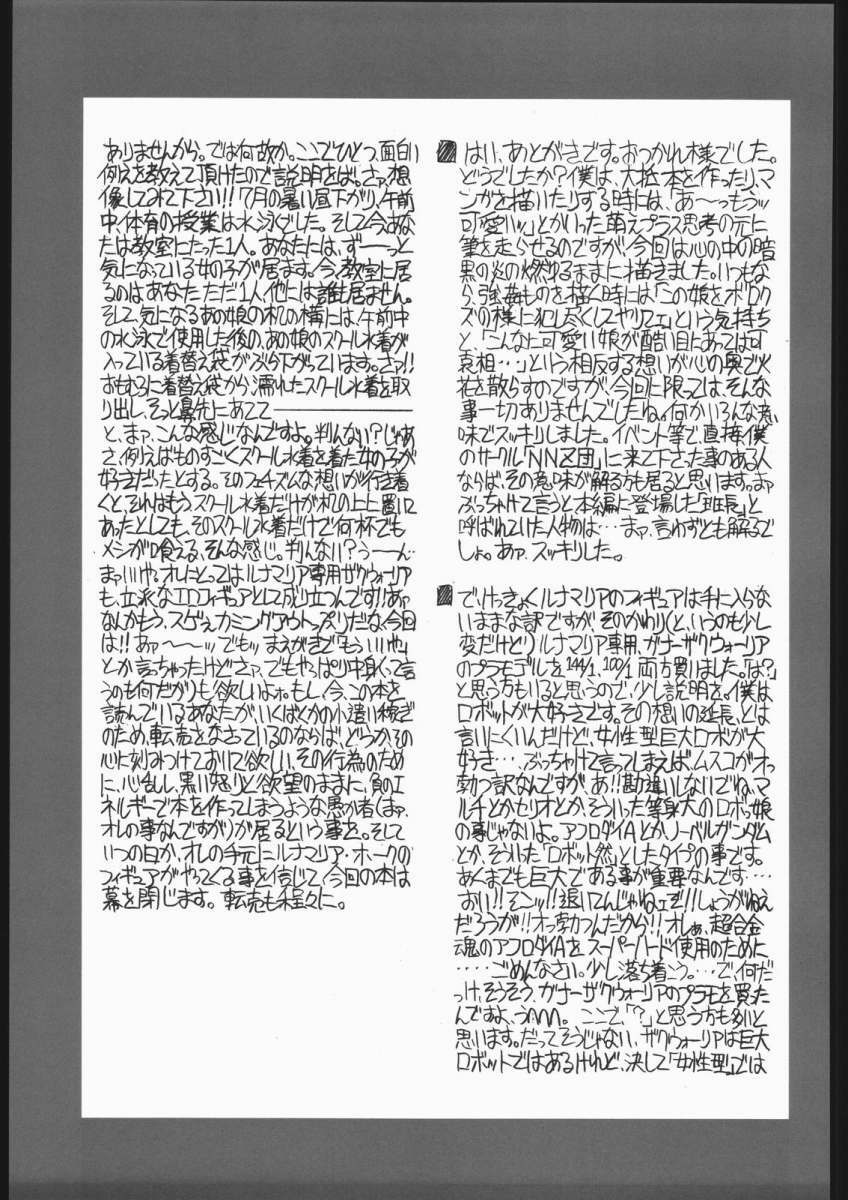 はい、あとがきです。おつかれ様でした。
どうでしたか?僕は、大抵本を作ったり、マ
ンガを描いたりする時には、「あ～っもうッ
可愛いッ」とかいった萌えプラス思考の元に
筆を走らせるのですが、今回は心の中の暗
黒の炎の燃ゆるままに描きました。いつもな
ら、強姦ものを描く時には「この娘をボロク
ズの様に犯し尽くしてヤリてェ」という気持ち
と、「こんなに可愛い娘が酷い目にあっては可
哀相…」という相反する想いが心の奥で火
花を散らすのですが、今回に限っては、そんな
事一切ありませんでしたね。何かいろんな意
味でスッキリしました。イベント等で、直接僕
のサークル「NNZ団」に来て下さった事のある人
ならば、その意味が解る方も居ると思います。まァ
ぶっちゃけて言うと、本編に登場した「班長」と
呼ばれていた人物は…まァ、言わずとも解るで
しょ。あァ、スッキリした。
で、けっきょくルナマリアのフィギュアは手に入らな
いままな訳ですが、そのかわり(と、いうのも少し
変だけど)ルナマリア専用、ガナーザクウォーリア
のプラモデルを144/1、100/1両方買いました。「は?」
と思う方もいると思うので、少し説明を。僕は
ロボットが大好きです。その想いの延長、とは
言いにくいんだけど、女性型巨大ロボが大
好き…ぶっちゃけて言ってしまえば、ムスコがオっ
勃つ訳なんですが、あ!!勘違いしないでね、マ
ルチとかセリオとか、そういった等身大のロボっ娘
の事じゃないよ。アフロダイAとかノーベルガンダム
とか、そういった「ロボット然」としたタイプの事です。
あくまでも巨大である事が重要なんです‥‥
おい!!そこッ!!退いてんじゃねェぞ!!しょうがねえ
だろうが!!オっ勃つんだから!!オレぁ、超合金
魂のアフロダイAを スーパーハード使用のために
‥‥‥ごめんなさい。少し落ち着こう。…で、何だ
っけ、そうそう、ガナーザクウォーリアのプラモを買った
んですよ、うんん。 ここで、「?」と思う方も多いと
思います。だってそうじゃない、ザクウォーリアは巨大
ロボットではあるけれど、決して「女性型」では
ありませんから。では何故か。ここでひとつ、面白い
例えを教えて頂けたので説明をば。さァ、想
像してみて下さい!!「7月の暑い昼下がり、午前
中、体育の授業は水泳でした。そして今あな
たは教室にたった1人。あなたには、ず――っと
気になっている女の子が居ます。今、教室に居
るのはあなたただ1人、他には誰も居ません。
そして、気になるあの娘の机の横には、午前中
の水泳で使用した後の、あの娘のスクール水着が
入っている着替え袋がぶら下がっています。さァ!!
おもむろに着替え袋から、濡れたスクール水着を取
り出し、そっと鼻先にあてて――――――
と、まァ、こんな感じなんですよ。判んない?じゃあ
さ、例えばものすごくスクール水着を着た女の子が
好きだったとする。そのフェチズムな想いが行き着
くと、それはもう、スクール水着だけが机の上に置いて
あったとしても、そのスクール水着だけで何杯でも
メシが喰える、そんな感じ。判んない?う～ん…
まァいいや。オレにとってはルナマリア専用ザクウォーリア
も、立派なエロフィギュアとして成り立つんです!!あァ
なんかもう、スゲぇカミングアウトっぷりだな、今回
は!! あァ～～ッ でもッ まえがきで「もういいや」
とか言っちゃったけどさァ、でもやっぱり中身(って言
うのも何だが)も欲しいよォ。もし、今、この本を
読んでいるあなたが、いくばくかの小遣い稼ぎ
のため、転売をなさっているのならば、どうか、その
心に刻みつけておいて欲しい。その行為のため
に、心乱し、黒い怒りと欲望のままに、負のエ
ネルギーで本を作ってしまうような愚か者(まァ、
オレの事なんですが)が居るという事を。そして
いつの日か、オレの手元にルナマリア・ホークの
フィギュアがやってくる事を信じて、今回の本は
幕を閉じます。 転売も程々に。